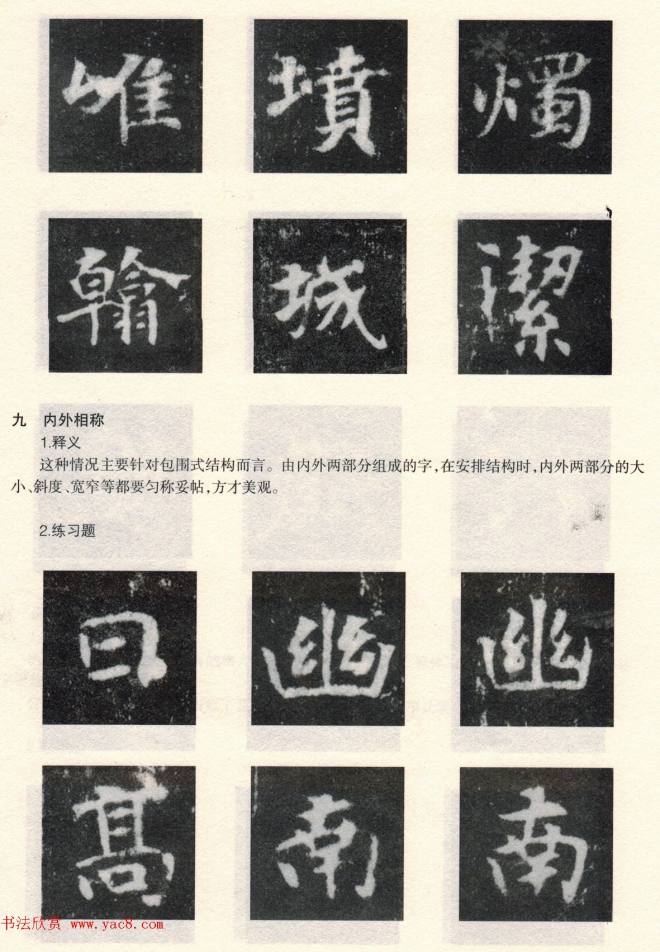 唯 墳 燭
翰 城 潔
九 内外相称
1.释义
这种情况主要针对包围式结构而言。由内外两部分组成的字,在安排结构时,内外两部分的大
小、斜度、宽窄等都要匀称妥帖,方才美观。
2.练习题
日 幽 幽
髙 南 南
书法欣赏 www.yac8.com